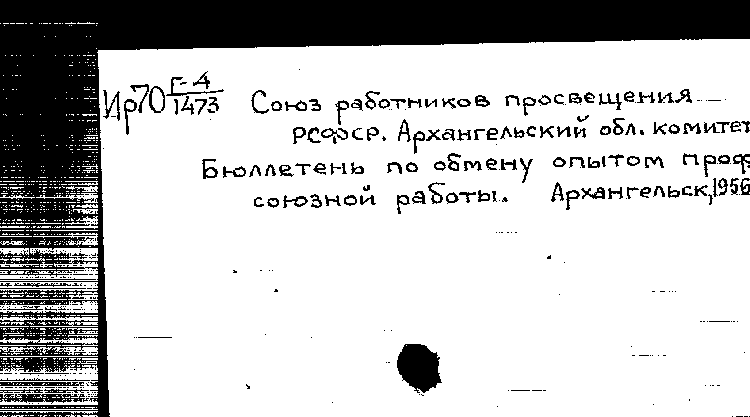 Ир70 Г-4/1473 Союз работников просвещения
РСФСР. Архангельский обл. комитет
Бюллетень по обмену опытом проф
союзной работы. Архангельск, 1956